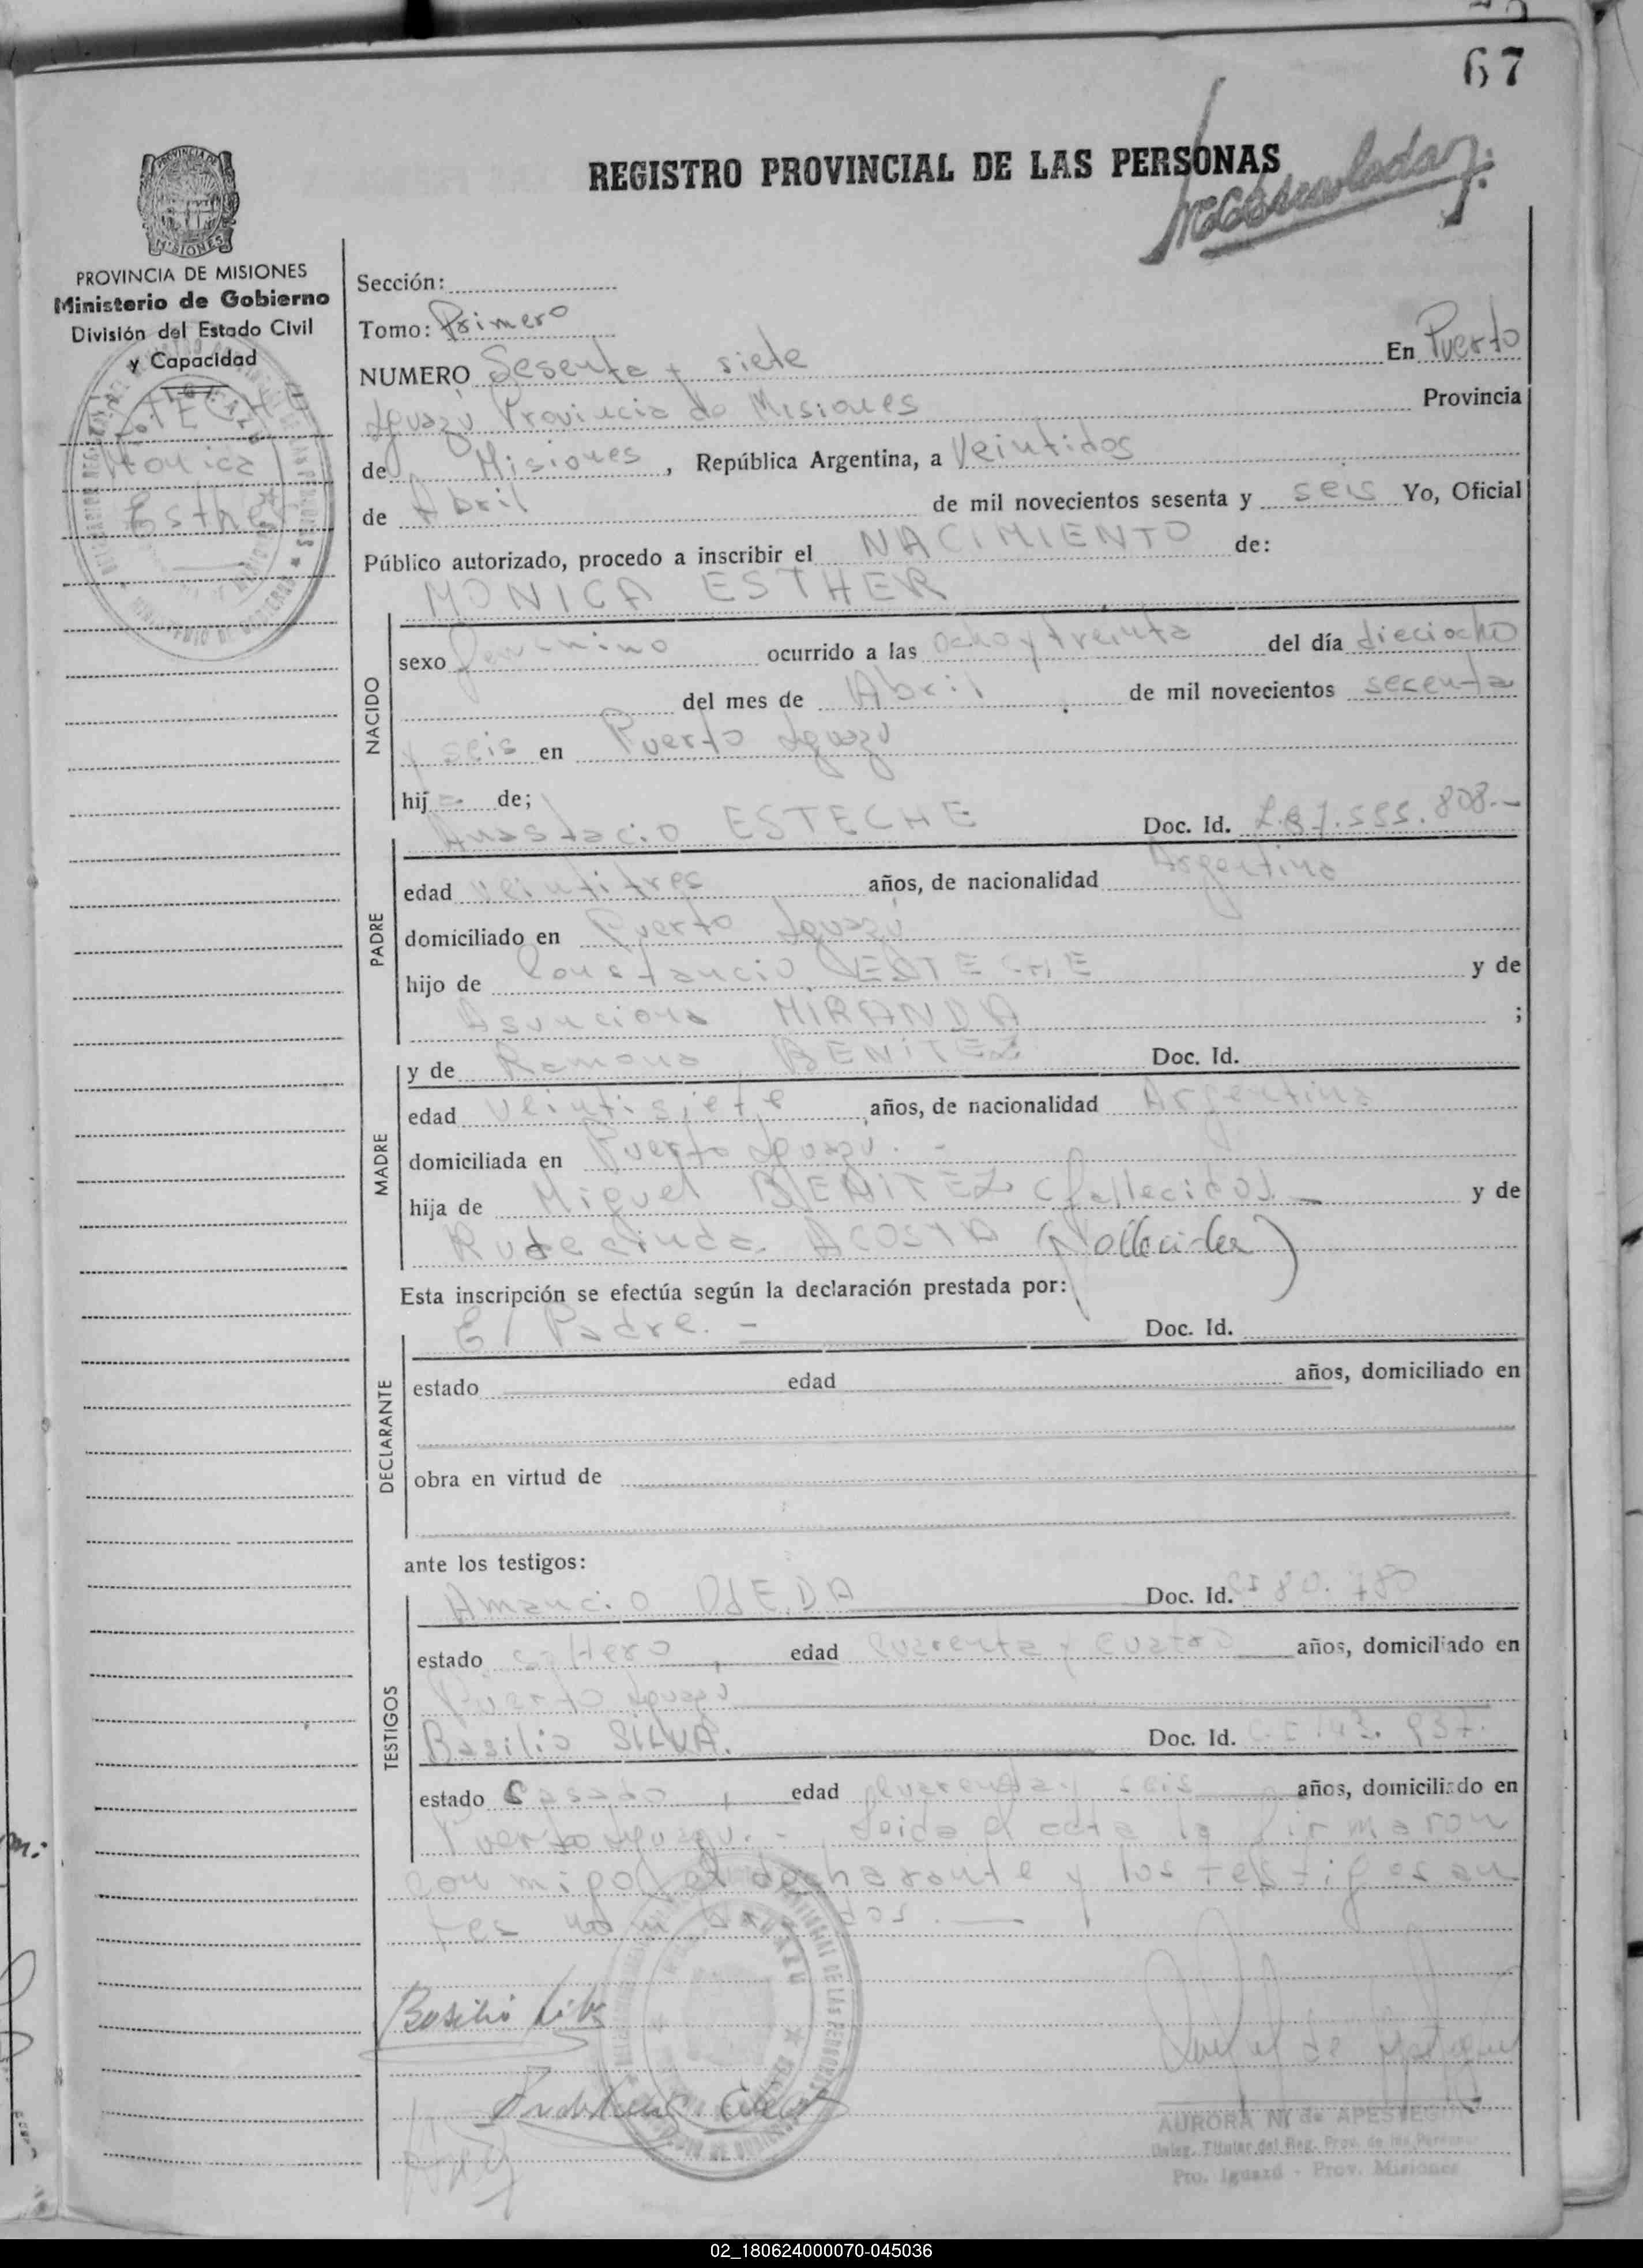 67
REGISTRO PROVINCIAL DE LAS PERSONAS
PROVINCIA DE MISIONES
Ministerio de Gobierno
División del Estado Civil
y Capacidad
Monica
Esther
Sección:
Tomo: Primero
NUMERO Sesenta y siete En Puerto
Iguazú Provincia de Misiones Provincia
de Misiones, República Argentina, a Veintidos
de Abril de mil novecientos sesenta y seis Yo, Oficial
Público autorizado, procedo a inscribir el NACIMIENTO de:
MONICA ESTHER
NACIDO
sexo femenino ocurrido a las ocho y treinta del día dieciocho
del mes de Abril de mil novecientos secenta
y seis en Puerto Iguazú
hij de;
Anastacio ESTECHE Doc. Id.
PADRE
edad veintitres años, de nacionalidad Argentina
domiciliado en Puerto Iguazú
hijo de Constancio ESTECHE y de
Asunciona MIRANDA ;
y de Ramona BENITEZ Doc. Id.
MADRE
edad veintisiete años, de nacionalidad Argentina
domiciliada en Puerto Iguazú. -
hija de Miguel BENITEZ (fallecido) y de
Rudecinda ACOSTA (fallecida)
Esta inscripción se efectúa según la declaración prestada por:
El Padre. - Doc. Id.
DECLARANTE
estado edad años, domiciliado en
obra en virtud de
ante los testigos:
Amancio OJEDA Doc. Id. CI 80. 780
TESTIGOS
estado soltero, edad cuarenta y cuatro años, domiciliado en
Puerto Iguazú
Basilio SILVA. Doc. Id. C.I 143. 937.
estado Casado, edad cuarenta y seis años, domiciliado en
Puerto Iguazu. - Leida el acta la firmaron
conmigo el declarante y los testigos an
tes nombrados.
Basilio
AURORA N. de APESTEGUI
Deleg. Titular del Reg. Prov. de las Personas
Pto. Iguazú - Prov. Misiones
02_180624000070-045036